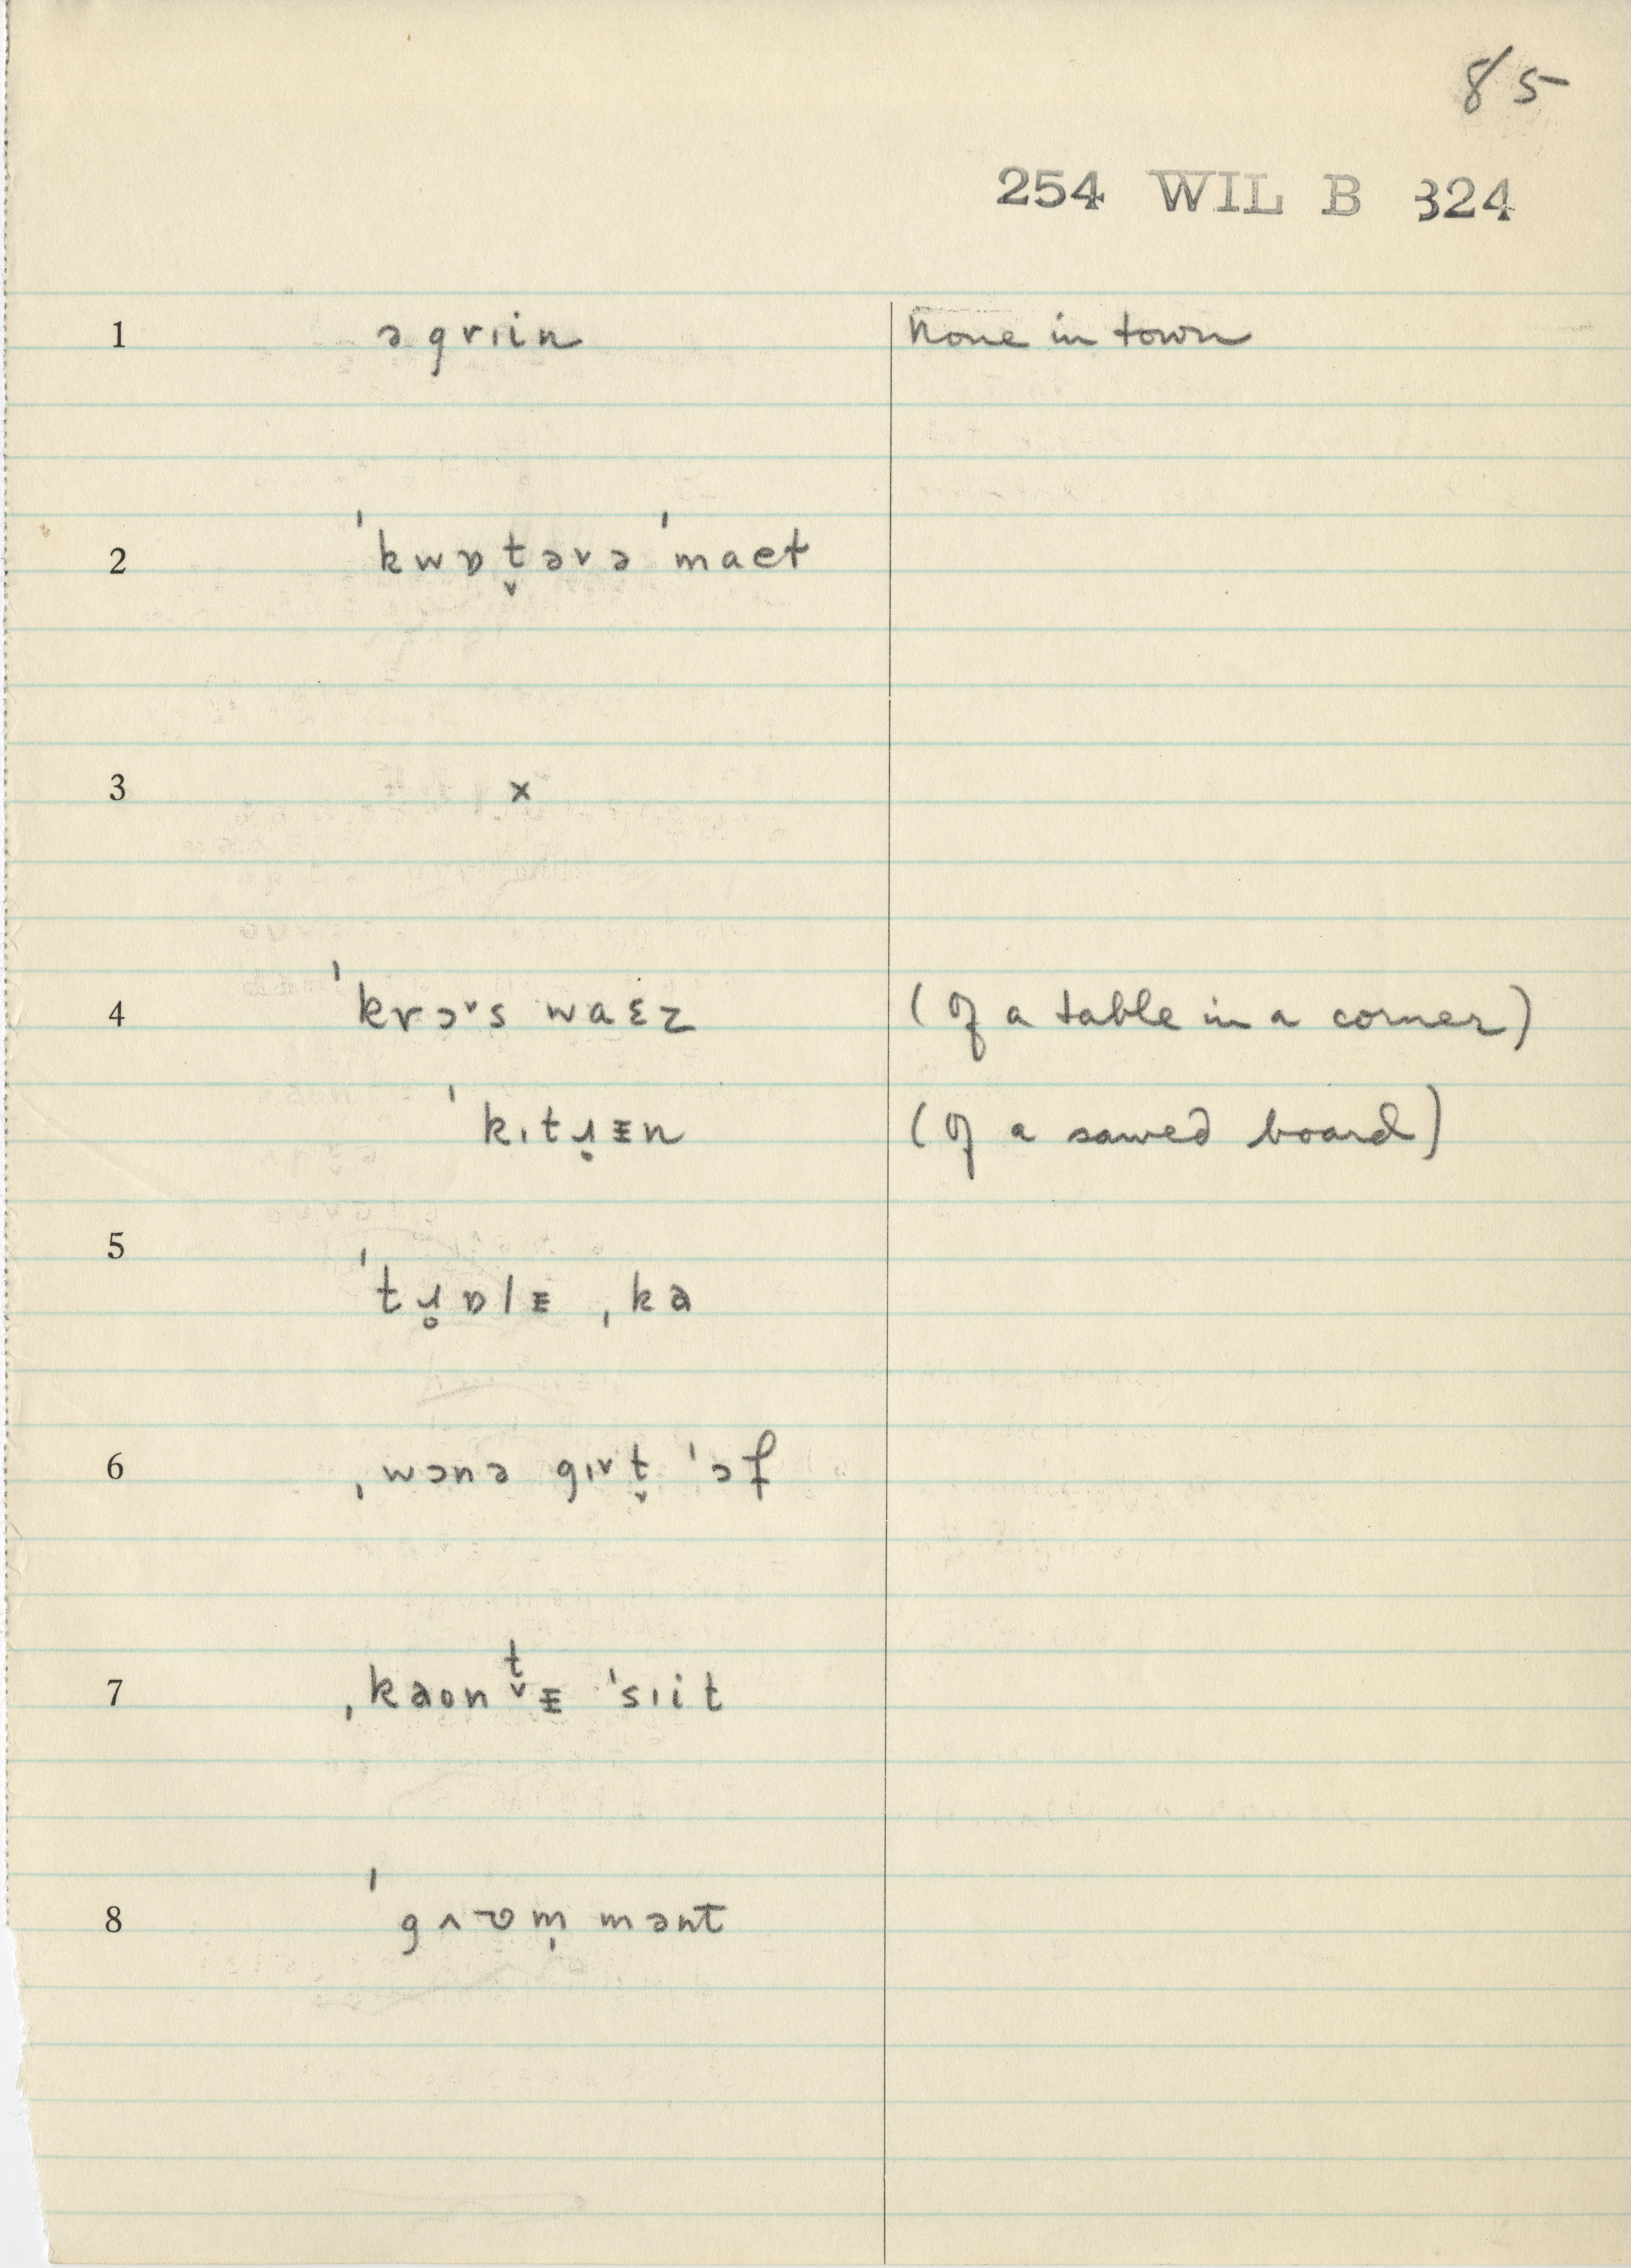 85
254 WIL B 324
1 ə grɪin None in town
2 ˈkwɒt̬ərə ˈmaet
3 x
4 ˈkrɔ˅s waɛz (of a table in a corner)
ˈkɪtɹ̥ᵻn (of a sawed board)
5 ˈtɹ̥ɒlᵻ ˌka
6 ˌwɔnə gɪ˅t̬ ˈɔf
7 ˌkaont̬ᵻ ˈsɪit
8 ˈgʌʊm̩ mənt